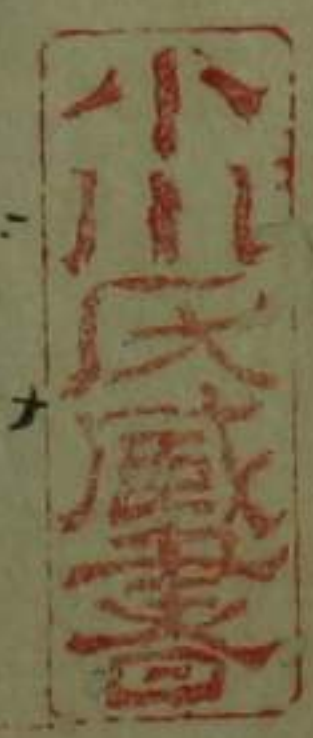 小川氏蔵書